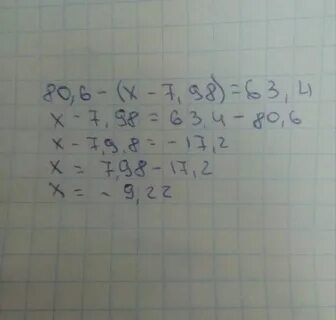 80,6-(x-7,98)=63,4
x-7,98=63,4-80,6
x-7,9,8=-17,2
x=7,98-17,2
x=-9,22